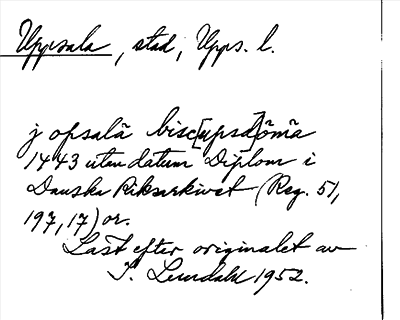 Uppsala, stad, Upps. l.
j opsalā bisc[upsd]ömā
1443 utan datum Diplom i
Danska Riksarkivet (Reg. 51,
197, 17) or.
Läst efter originalet av
I. Leurdahl 1952.